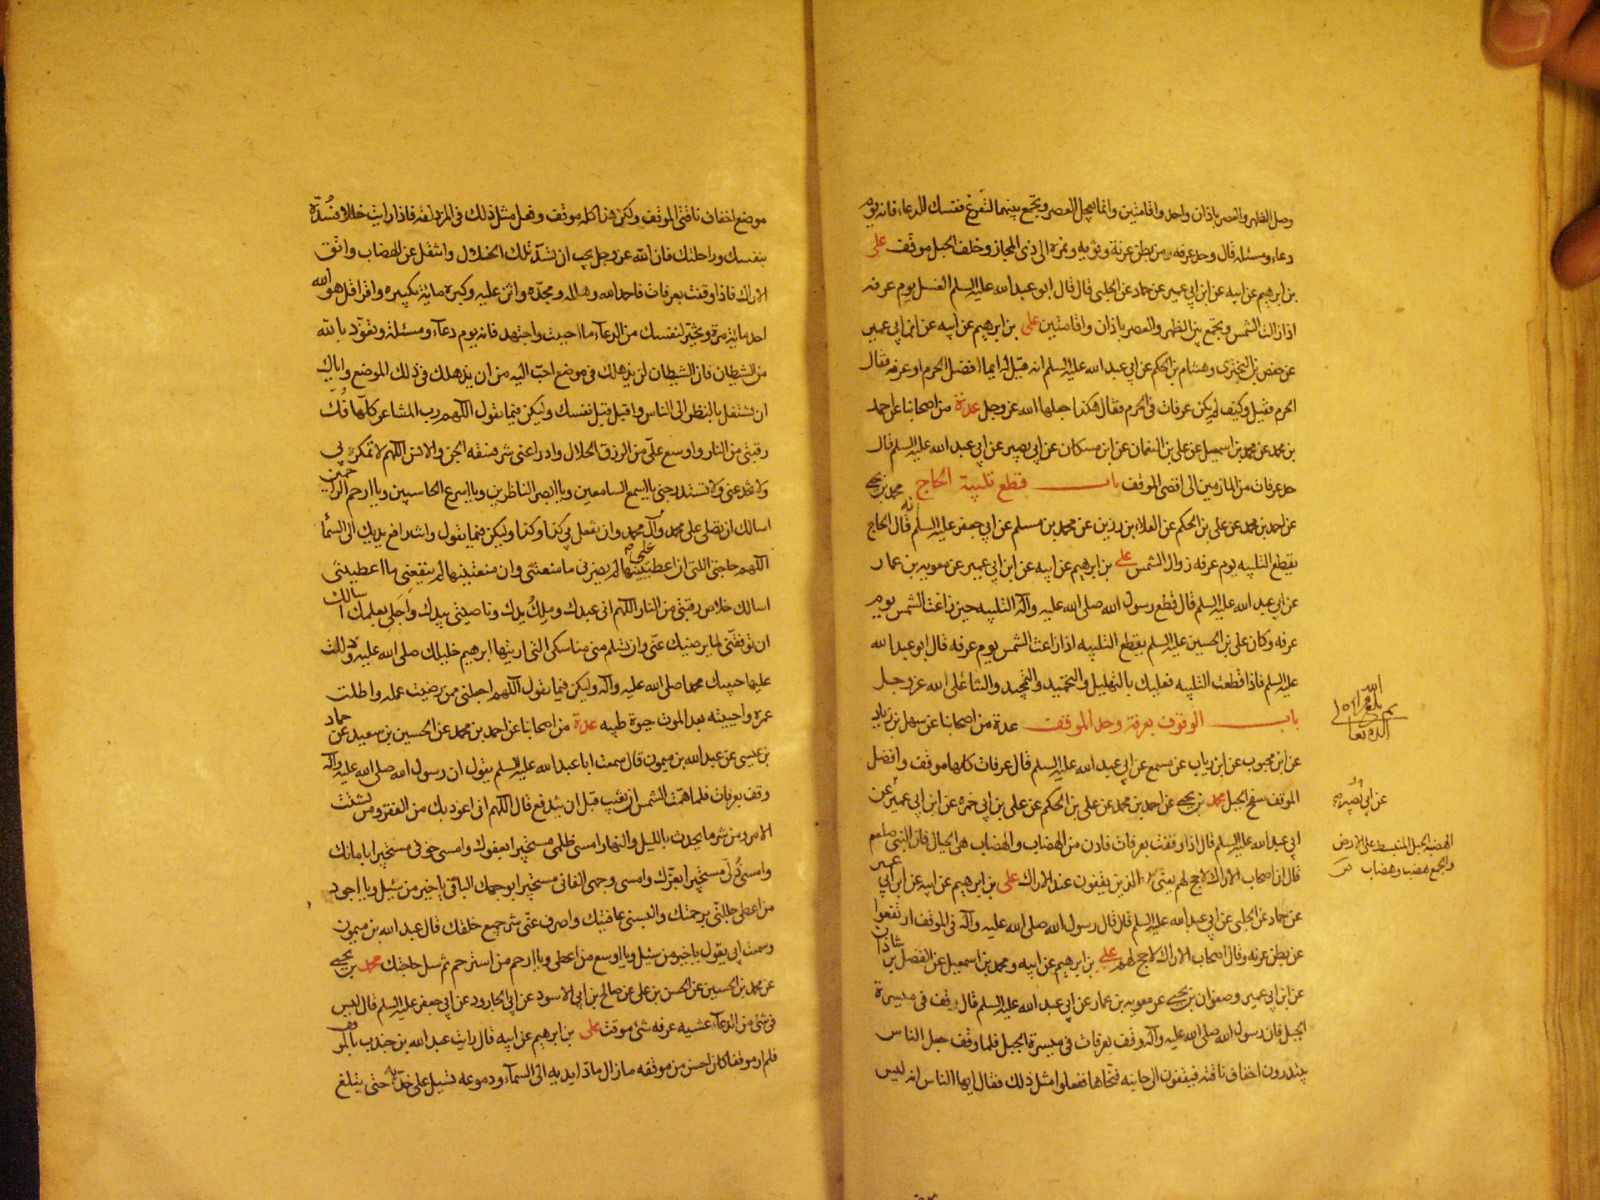 وصل الظهر والعصر باذان واحد واقامتين وانما تعجل العصر وتجمع بينهما لتفرغ نفسك للدعاء فانه يوم
دعاء ومسئلة قال وحد عرفه من بطن عرنة وثويه ونمرة الى ذى المجاز وخلف الجبل موقف على
بن ابرهيم عن ابيه عن ابن ابي عمير عن حماد عن الحلبى قال قال ابو عبد الله عليه السلم الغسل يوم عرفه
اذا زالت الشمس وتجمع بين الظهر والعصر باذان واقامتين على بن ابرهيم عن ابيه عن ابن ابي عمير
عن حفص بن البخترى وهشام بن الحكم عن ابي عبد الله عليه السلم انه قيل له ايما افضل الحرم او عرفه فقال
الحرم فقيل وكيف لم يكن عرفات فى الحرم فقال هكذا جعلها الله عز وجل عدة من اصحابنا عن احمد
بن محمد عن محمد بن اسمعيل عن على بن النعمان عن ابن مسكان عن ابي بصير عن ابي عبد الله عليه السلم قال
حد عرفات من المازمين الى اقصى الموقف باب قطع تلبية الحاج محمد بن يحيى
عن احمد بن محمد عن على بن الحكم عن العلاء بن رزين عن محمد بن مسلم عن ابي جعفر عليه السلم انه قال الحاج
يقطع التلبيه يوم عرفه زوال الشمس على بن ابرهيم عن ابيه عن ابن ابي عمير عن معويه بن عمار
عن ابي عبد الله عليه السلم قال قطع رسول الله صلى الله عليه وآله التلبيه حين زاغت الشمس يوم
عرفه وكان على بن الحسين عليه السلم يقطع التلبيه اذا زاغت الشمس يوم عرفه قال ابو عبد الله
عليه السلم فاذا قطعت التلبيه فعليك بالتهليل والتحميد والتمجيد والثنا على الله عز وجل
باب الوقوف بعرفة وحد الموقف عدة من اصحابنا عن سهل بن زياد
عن ابن محبوب عن ابن رياب عن مسمع عن ابي عبد الله عليه السلم قال عرفات كلها موقف وافضل
الموقف سفح الجبل محمد بن يحيى عن احمد بن محمد عن على بن الحكم عن على بن ابي حمزه عن ابن ابي عمير عن
ابي عبد الله عليه السلم قال اذا وقفت بعرفات فادن من الهضاب والهضاب هى الجبال فان النبى صلعم
قال ان اصحاب الاراك لا حج لهم يعنى الذين يقفون عند الاراك على بن ابرهيم عن ابيه عن ابن ابي عمير
عن حماد عن الحلبى عن ابي عبد الله عليه السلم قال قال رسول الله صلى الله عليه وآله فى الموقف ارتفعوا
عن بطن عرنه وقال اصحاب الاراك لا حج لهم على بن ابرهيم عن ابيه ومحمد بن اسمعيل عن الفضل بن شاذان
عن ابن ابي عمير وصفوان بن يحيى عن معويه بن عمار عن ابي عبد الله عليه السلم قال قف فى ميسرة
الجبل فان رسول الله صلى الله عليه وآله وقف بعرفات فى ميسرة الجبل فلما وقف جعل الناس
يبتدرون اخفاف ناقته فيقفون الى جانبه فنحاها ففعلوا مثل ذلك فقال ايها الناس انه ليس
عن ابي بصير
الهضبة الجبل المنبسط على الارض
والجمع هضب وهضاب ص
موضع اخفاف ناقتى الموقف ولكن هذا كله موقف وفعل مثل ذلك فى المزدلفه فاذا رايت خللا فسده
بنفسك وراحلتك فان الله عز وجل يحب ان تسد تلك الخلال وانتقل عن الهضاب واتق
الاراك فاذا وقفت بعرفات فاحمد الله وهلله ومجده واثن عليه وكبره مائة تكبيره واقرا قل هو الله
احد مائة مرة وتخير لنفسك من الدعآء ما احببت واجتهد فانه يوم دعآء ومسئلة وتعوذ بالله
من الشيطان فان الشيطان لن يذهلك فى موضع احب اليه من ان يذهلك فى ذلك الموضع واياك
ان تشتغل بالنظر الى الناس واقبل قبل نفسك وليكن فيما تقول اللهم رب المشاعر كلها فك
رقبتى من النار واوسع على من الرزق الحلال وادرا عنى شر فسقه الجن والانس اللهم لا تمكر بى
ولا تخدعنى ولا تستدرجنى يا اسمع السامعين ويا ابصر الناظرين ويا اسرع الحاسبين ويا ارحم الراحمين
اسالك ان تصلى على محمد وآل محمد وان تفعل بى كذا وكذا وليكن فيما تقول وانت رافع يديك الى السمآ
اللهم حاجتى التى ان اعطيتنيها لم يضرنى ما منعتنى وان منعتنيها لم ينفعنى ما اعطيتنى
اسالك خلاص رقبتى من النار اللهم انى عبدك وملك يدك وناصيتى بيدك واجلى بعلمك اسالك
ان توفقنى لما يرضيك عنى وان تسلم منى مناسكى التى اريتها ابرهيم خليلك صلى الله عليه ودللت
عليها حبيبك محمدا صلى الله عليه وآله وليكن فيما تقول اللهم اجعلنى ممن رضيت عمله واطلت
عمره واحييته بعد الموت حيوة طيبه عدة من اصحابنا عن احمد بن محمد عن الحسين بن سعيد عن حماد
بن عيسى عن عبد الله بن ميمون قال سمعت ابا عبد الله عليه السلم يقول ان رسول الله صلى الله عليه وآله
وقف بعرفات فلما همت الشمس ان تغيب قبل ان يندفع قال اللهم انى اعوذ بك من الفقر ومن تشتت
الامر ومن شر ما يحدث بالليل والنهار امسى ظلمى مستجيرا بعفوك وامسى خوفى مستجيرا بامانك
وامسى ذلى مستجيرا بعزك وامسى وجهى الفانى مستجيرا بوجهك الباقى يا خير من سئل ويا اجود
من اعطى جللنى برحمتك والبسنى عافيتك واصرف عنى شر جميع خلقك قال عبد الله بن ميمون
وسمعت ابى يقول يا خير من سئل ويا اوسع من اعطى ويا ارحم من استرحم ثم سل حاجتك محمد بن يحيى
عن محمد بن الحسين عن الحسن بن على عن صالح بن ابي الاسود عن ابي الجارود عن ابي جعفر عليه السلم قال ليس
فى شئ من الدعآء عشيه عرفه شئ موقت على بن ابرهيم عن ابيه قال رايت عبد الله بن جندب بالموقف
فلم ار موقفا كان احسن من موقفه ما زال مادا يديه الى السمآء ودموعه تسيل على خديه حتى يبلغ